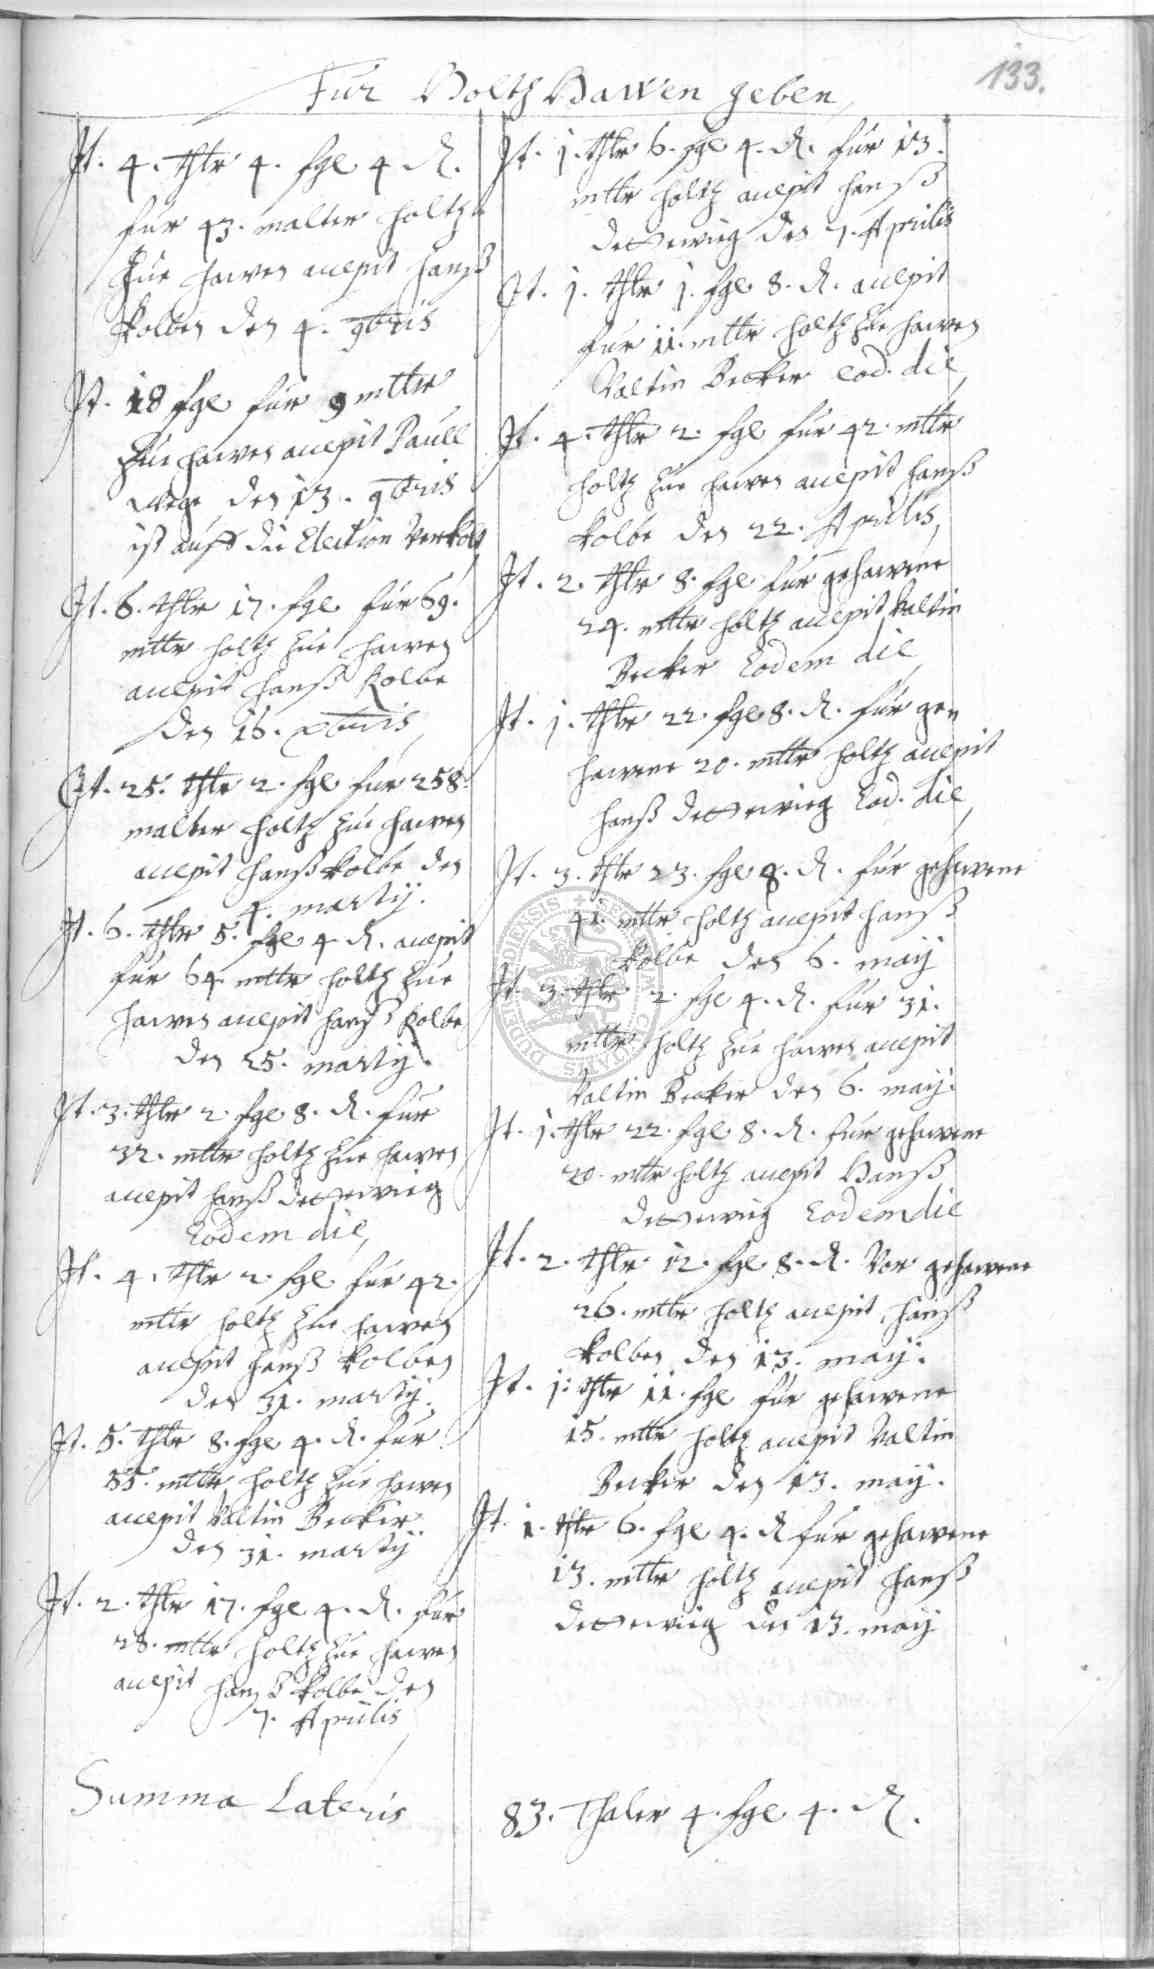 133.
Fur Holtz Hawen geben
It. 4. thlr 4. sgl 4 d.
fur 43. malter holtz
zue hawen accepit Hanß
Kolben den 4. 9bris
It. 18 sgl fur 9 mltr
zue hawen accepit Paull
Wege den 13. 9bris
ist auff die Election Verkolt
It. 6. thlr 17. sgl fur 69.
mltr holtz zue hawen
accepit Hanß Kolbe
den 16. xbris
It. 25. thlr 2. sgl fur 258.
malter holtz zue hawen
accepit Hanß Kolbe den
4. martij.
It. 6. thlr 5. sgl 4 d. accepit
fur 64 mltr holtz zue
hawen accepit Hanß Kolbe
den 25. martij.
It. 3. thlr 2. sgl 8. d. fur
32. mltr holtz zue hawen
accepit Hanß
Eodem die,
It. 4. thlr 2. sgl fur 42.
mltr holtz zue hawen
accepit Hanß Kolben
den 31. martij.
It. 5. thlr 8. sgl 4. d. fur
55. mltr holtz zue hawen
accepit Valtin Becker
den 31. martij
It. 2. thlr 17. sgl 4. d. fur
28. mltr holtz zue hawen
accepit Hanß Kolbe den
7. Aprilis
It. 1. thlr 6. sgl 4. d. fur 13.
mltr holtz accepit Hanß
den 7. Aprilis
It. 1. thlr 1. sgl 8. d. accepit
fur 11. mltr holtz zue hawen
Valtin Becker eod. die
It. 4. thlr 2. sgl fur 42. mltr
holtz zue hawen accepit Hanß
Kolbe den 22. Aprilis
It. 2. thlr 8. sgl fur gehawene
24. mltr holtz accepit Valtin
Becker Eodem die
It. 1. thlr 22. sgl 8. d. fur ge
hawene 20. mltr holtz accepit
Hanß Eod. die
It. 3. thlr 23. sgl 4. d. fur gehawene
41. mltr holtz accepit Hanß
Kolbe den 6. maij
It. 3. thlr 2. sgl 4. d. fur 31.
mltr holtz zue hawen accepit
Valtin Becker den 6. maij.
It. 1. thlr 22. sgl 8. d. fur gehawene
20. mltr holtz accepit Hanß
Eodem die
It. 2. thlr 12. sgl 8. d. Vor gehawene
26. mltr holtz accepit Hanß
Kolben den 13. maij.
It. 1. thlr 11. sgl fur gehawene
15. mltr holtz accepit Valtin
Becker den 13. maij.
It. 1. thlr 6. sgl 4. d fur gehawene
13. mltr holtz accepit Hanß
den 13. maij
Summa Lateris
83. Thaler 4. sgl 4. d.